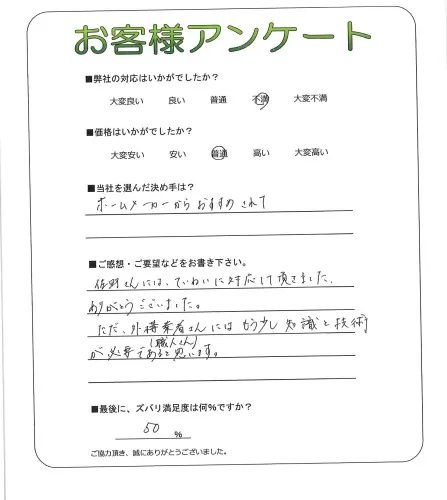 お客様アンケート
■弊社の対応はいかがでしたか?
大変良い 良い 普通 不満 大変不満
■価格はいかがでしたか?
大変安い 安い 普通 高い 大変高い
■当社を選んだ決め手は?
ホームメーカーからおすすめされて
■ご感想・ご要望などをお書き下さい。
佐野さんには、ていねいに対応して頂きました。
ありがとうございました。
ただ、外構業者さんにはもう少し知識と技術
(職人さん)
が必要であると思います。
■最後に、ズバリ満足度は何%ですか?
50 %
ご協力頂き、誠にありがとうございました。